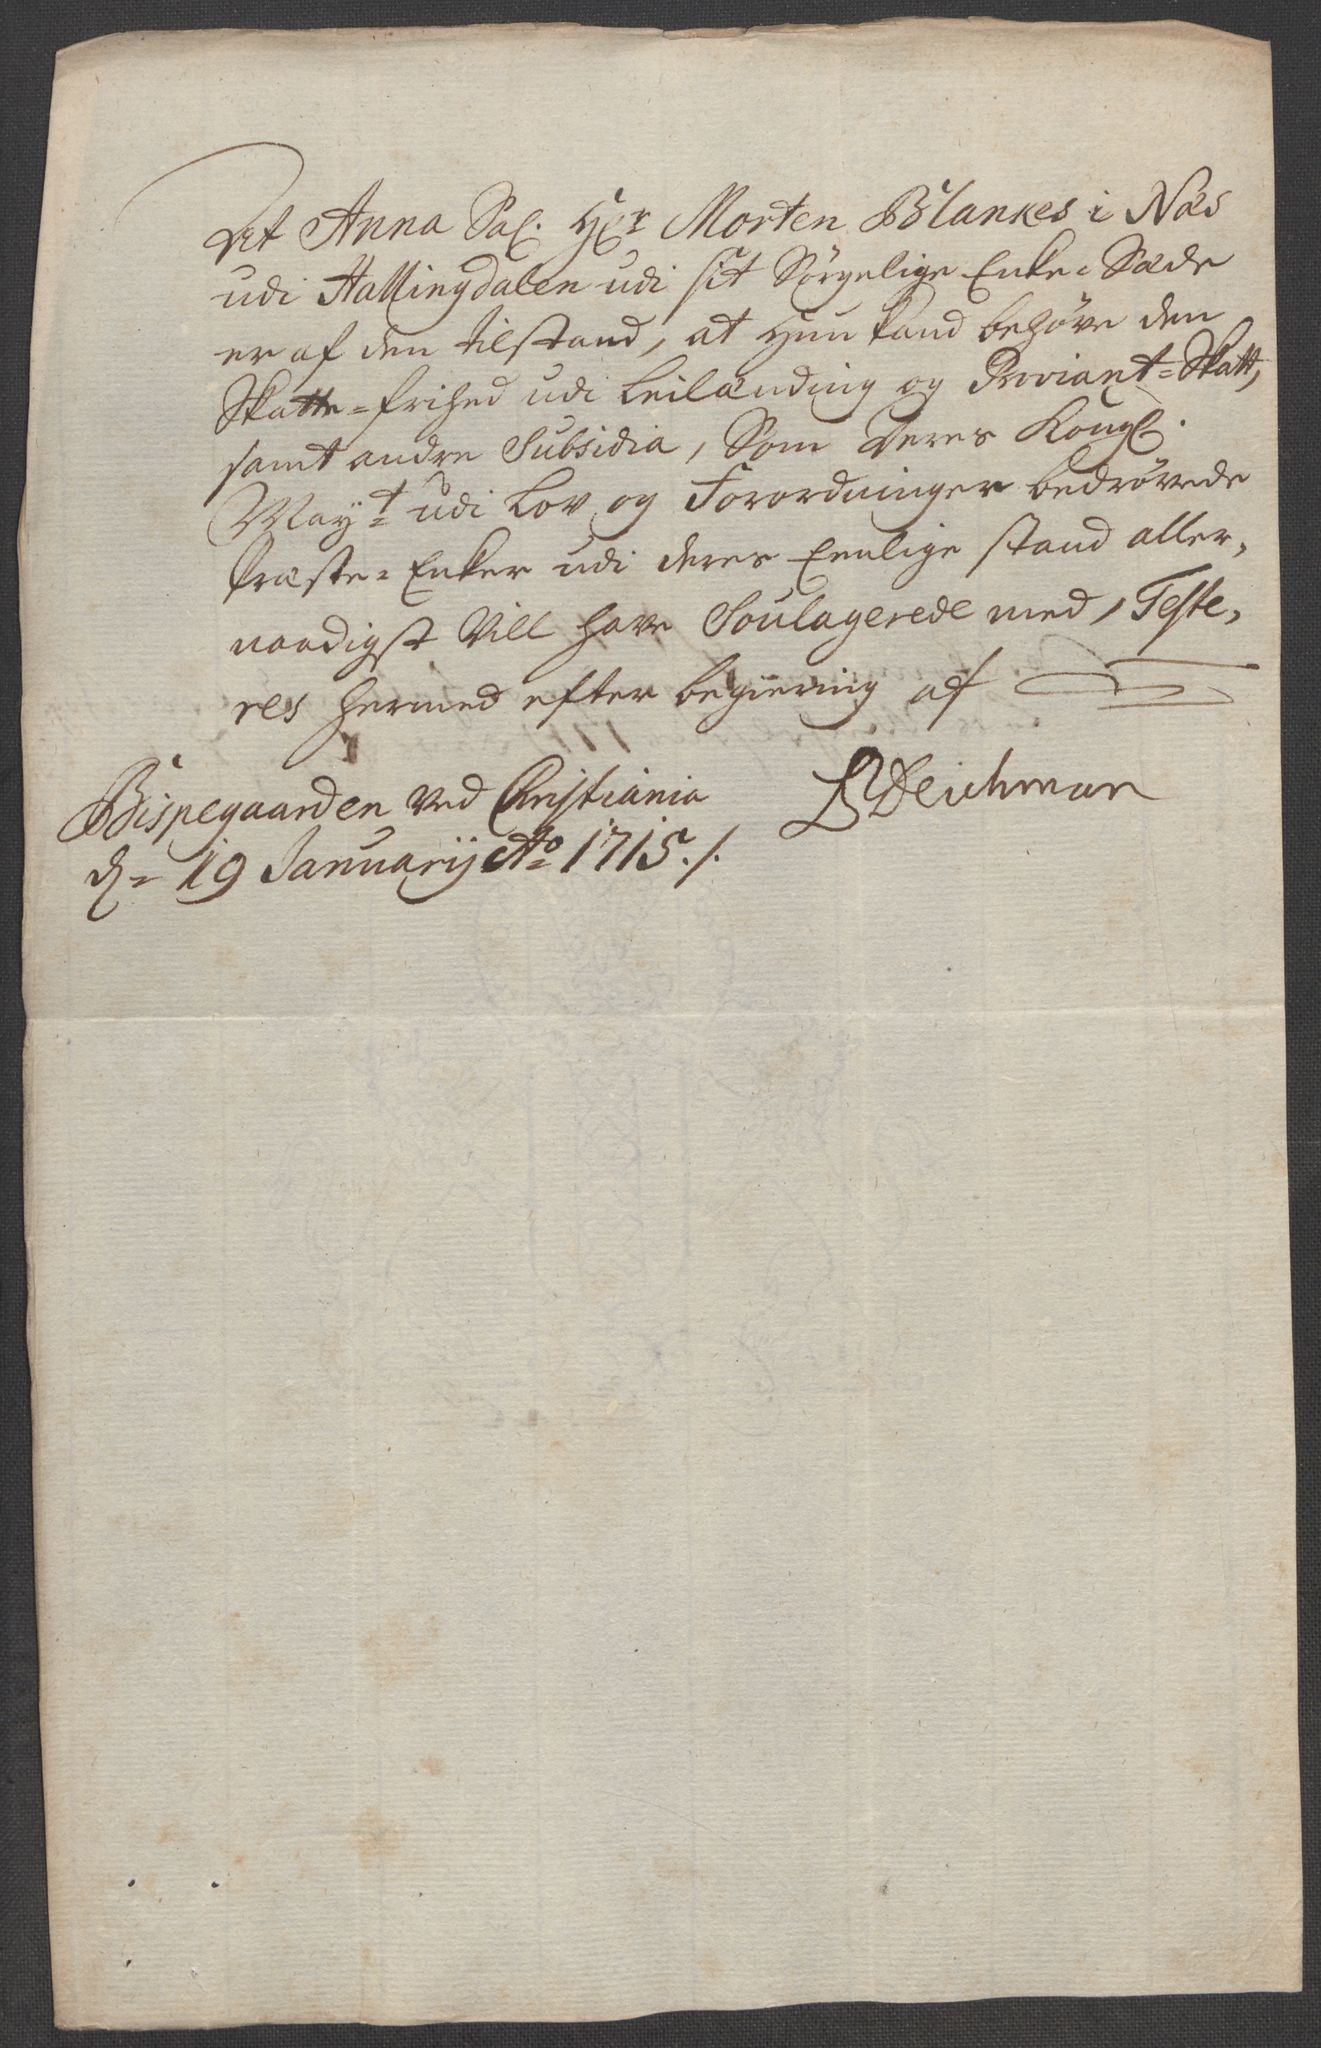 At Anna Sal. Hr Morten Blankes i Næs
udi Hallingdalen udi sit Sørgelige Enke-Sæde
er af den tilstand, at Hun kand behøve den
Skatte-frihed udi Leilænding og Proviant-Skatt,
samt andre Subsidia, Som Deres Kongl.
Mayt udi Lov og Forordninger bedrøvede
Præste-Enker udi deres Eenlige stand aller-
naadigst Vill have Soulagerede med, Teste-
res hermed efter begiering af
Bispegaarden ved Christiania
d= 19 Januarij Ao 1715./.
BDeichman